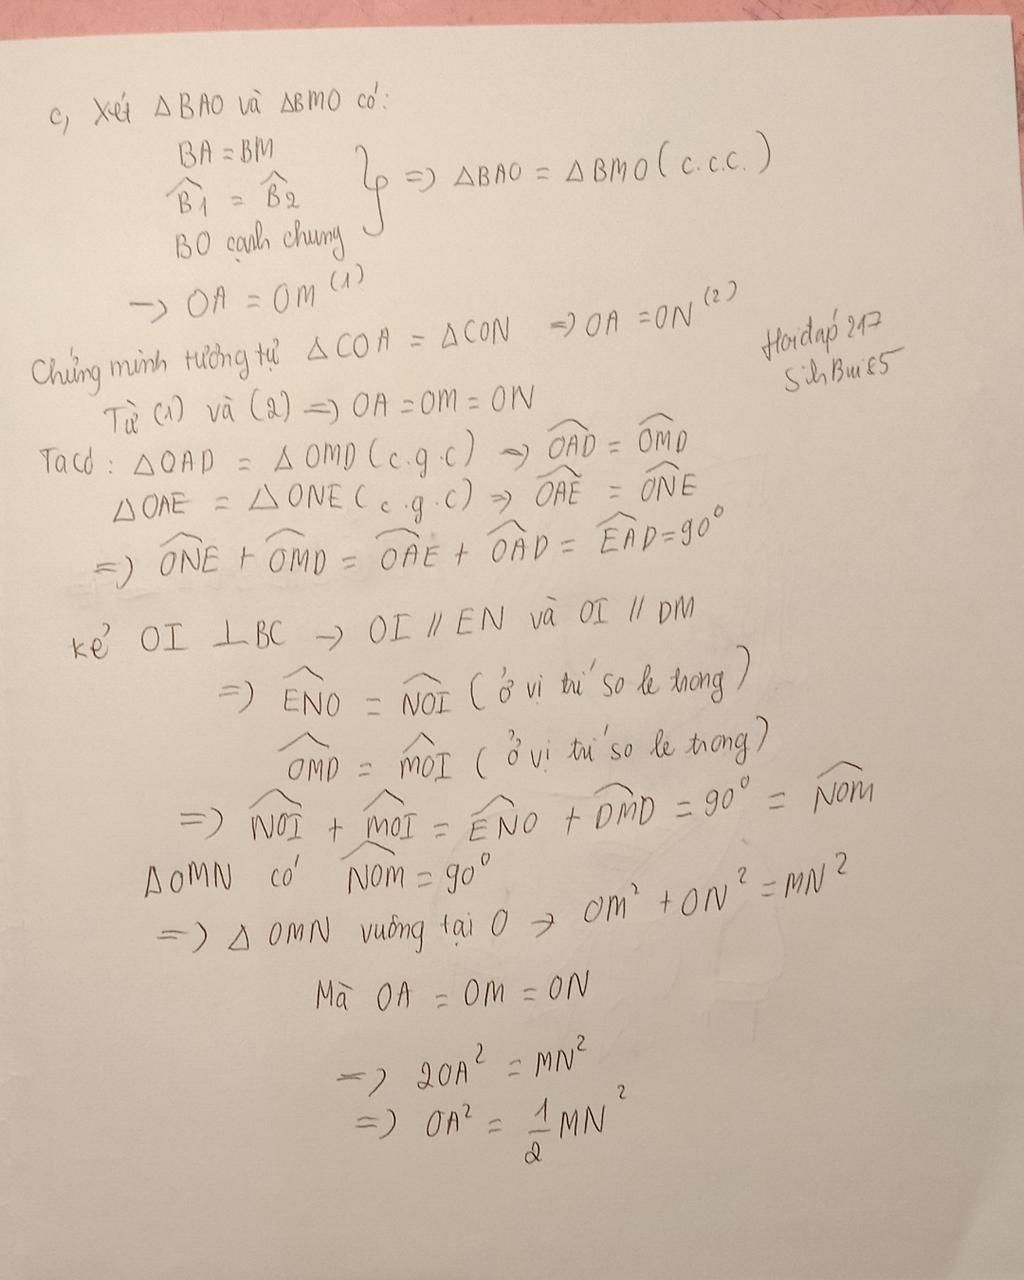 c, Xét △BAO và △BMO có:
BA = BM
B̂1 = B̂2
BO cạnh chung
} => △BAO = △BMO ( c.c.c. )
-> OA = OM (1)
Chứng minh tương tự △COA = △CON => OA = ON (2)
Từ (1) và (2) => OA = OM = ON
Hoidap 217
Ta có : △OAD = △OMD ( c.g.c ) => \widehat{OAD} = \widehat{OMD}
△OAE = △ONE ( c.g.c ) => \widehat{OAE} = \widehat{ONE}
=> \widehat{ONE} + \widehat{OMD} = \widehat{OAE} + \widehat{OAD} = \widehat{EAD} = 90°
kẻ OI ⊥ BC -> OI // EN và OI // DM
=> \widehat{ENO} = \widehat{NOI} ( ở vị trí so le trong )
\widehat{OMD} = \widehat{MOI} ( ở vị trí so le trong )
=> \widehat{NOI} + \widehat{MOI} = \widehat{ENO} + \widehat{OMD} = 90° = \widehat{NOM}
△OMN có \widehat{NOM} = 90°
=> △OMN vuông tại O -> OM² + ON² = MN²
Mà OA = OM = ON
=> 2OA² = MN²
=> OA² = 1/2 MN²